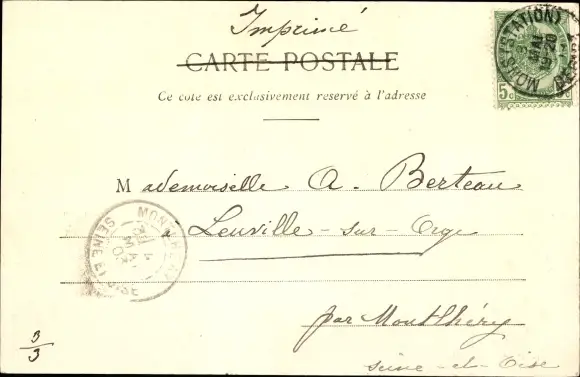 Imprimé
CARTE POSTALE
Ce coté est exclusivement reservé à l'adresse
5c
MONS (STATION)
Mademoiselle A. Berteau
à Leuville-sur-Orge
par Montlhéry
Seine-et-Oise
MONTLHERY
SEINE ET OISE
3/3